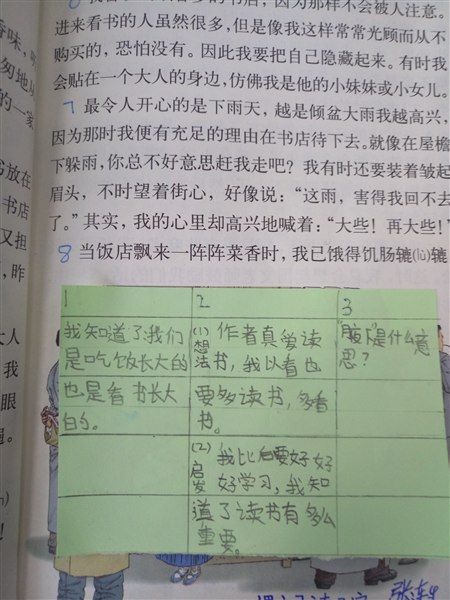 因为那样不会被人注意。
进来看书的人虽然很多，但是像我这样常常光顾而从不
购买的，恐怕没有。因此我要把自己隐藏起来。有时我
会贴在一个大人的身边，仿佛我是他的小妹妹或小女儿。
7 最令人开心的是下雨天，越是倾盆大雨我越高兴，
因为那时我便有充足的理由在书店待下去。就像在屋檐
下躲雨，你总不好意思赶我走吧？我有时还要装着皱起
眉头，不时望着街心，好像说：“这雨，害得我回不去
了。”其实，我的心里却高兴地喊着：“大些！再大些！”
8 当饭店飘来一阵阵菜香时，我已饿得饥肠辘(lù)辘
1
我知道了:我们
是吃饭长大的
也是看书长大
的。
2
(1)想法
作者真爱读
书，我以看也
要多读书，多看
书。
(2)启发
好
好学习，我知
道了读书有多么
重要。
3
“腋下”是什么意
思？
香味，
的一家
放在
书店
又担
，昨
大人
我
眼